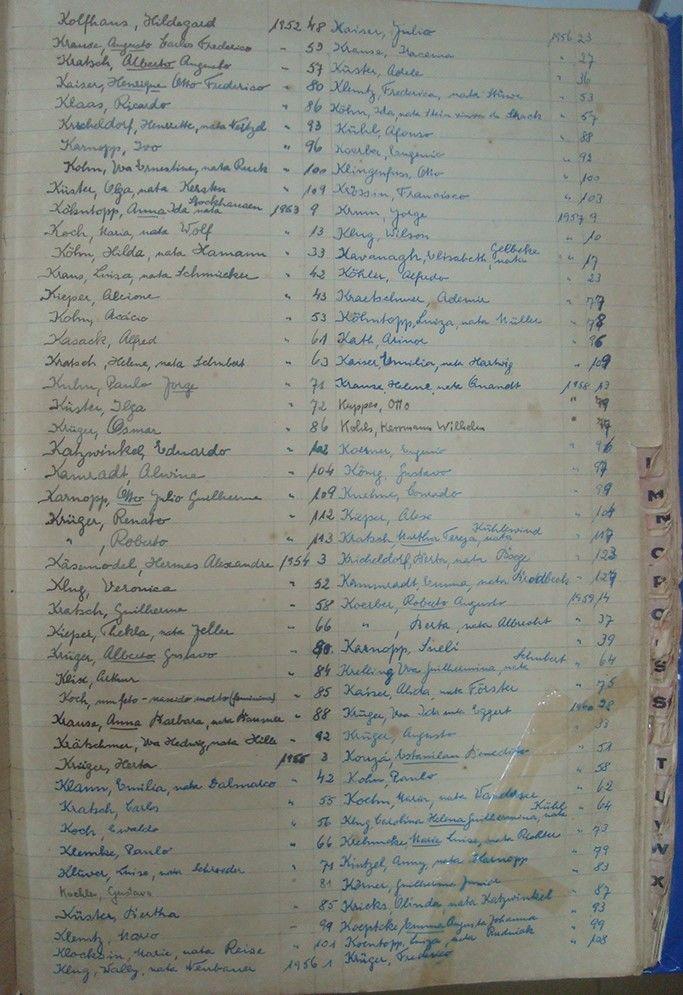 Kolfhaus, Hildegard 1952 48
Krause, Augusto Carlos Frederico " 53
Kratsch, Alberto Augusto " 57
Kaiser, Henrique Otto Frederico " 80
Klaas, Ricardo " 86
Kricheldorf, Henriette, nata " 93
Karnopp, Ivo " 96
Kohn, Wa Ernestine, nata " 100
Küster, Olga, nata Kersten " 109
Köhntopp, Anna Ida nata Stockhausen 1953 9
Koch, Maria, nata Wolf " 13
Köhn, Hilda, nata Hamann " 33
Kraus, Luisa, nata Schmücker " 42
Kieper, Alcione " 43
Kohn, Acácio " 53
Kasack, Alfred " 61
Kratsch, Helene, nata Schubert " 63
Kuhn, Paulo Jorge " 71
Küster, Ilga " 72
Krüger, Osmar " 86
Katzwinkel, Eduardo " 102
Kamradt, Alwine " 104
Karnopp, Otto Julio Guilherme " 109
Krüger, Renato " 112
" , Roberto " 113
Käsemodel, Hermes Alexandre 1954 3
Klug, Veronica " 52
Kratsch, Guilherme " 58
Kieper, Thekla, nata Zeller " 66
Krüger, Alberto Gustavo "
Klix, Arthur " 84
Koch, um feto - nascido morto (feminino) " 85
Krause, Anna Barbara, nata " 88
Krätschmer, Wa Hedwig, nata Hille " 92
Krüger, Herta 1955 3
Klann, Emilia, nata Dalmarco " 42
Kratsch, Carlos " 55
Koch, Ewaldo " 56
Klemke, Paulo " 66
Klüver, Luise, nata Schroeder " 71
Koehler, Gustavo " 81
Küster, Bertha " 85
Klemtz, Mario " 99
Klockzin, Marie, nata Reise " 101
Klug, Wally, nata Neubauer 1956 1
Kaiser, Julio 1956 23
Krause, Iracema " 27
Küster, Adele " 36
Klemtz, Frederica, nata " 53
Köhn, Ida, nata " 57
Kühl, Afonso " 88
Koerber, Eugenio " 92
Klingenfuss, Otto " 100
Krössin, Francisco " 103
Krum, Jorge 1957 9
Klug, Wilson " 10
Kavanagh, Elisabeth, nata Gelbcke " 17
Köhler, Alfredo " 23
Kraetschmer, Ademir " 77
Köhntopp, Luiza, nata Müller " 78
Kath, Arinor " 96
Kaiser, Emilia, nata Hartwig " 109
Krause, Helene, nata Anandt 1958 13
Kuppas, Otto "
Kohls, Herrmann Wilhelm "
Koerner, Eugenio " 96
König, Gustavo " 97
Kuehne, Conrado " 99
Kieper, Alex " 104
Kratsch, Martha Tereza, nata Kühlewind " 117
Kricheldorf, Herta, nata " 123
Kammradt, Emma, nata Brodbeck " 127
Koerber, Roberto Augusto 1959 14
" , Herta, nata Albrecht " 37
Karnopp, Sueli " 39
Krelling, Wa Guilhermina, nata Schubert " 64
Kaiser, Alida, nata Förster " 75
Krüger, Wa Ida nata Eggert 1960 28
Krüger, Augusto " 33
Estanilau Benedito " 51
Kohn, Paulo " 58
Koehn, Maria, nata " 62
Klug, Carolina Helena Guilhermina, nata Kühl " 64
Krehnke, Marie Luise, nata Richter " 73
Kintzel, Anny, nata Karnopp " 79
Körner, Guilherme Junior " 83
Kricks, Olinda, nata Katzwinkel " 87
Koeptcke, Emma Augusta Johanna " 93
Koentopp, Luiza, nata Rudnick " 99
Krüger, Frederico " 108
I
M
N
O
P
Q
S
S
T
U
W
X